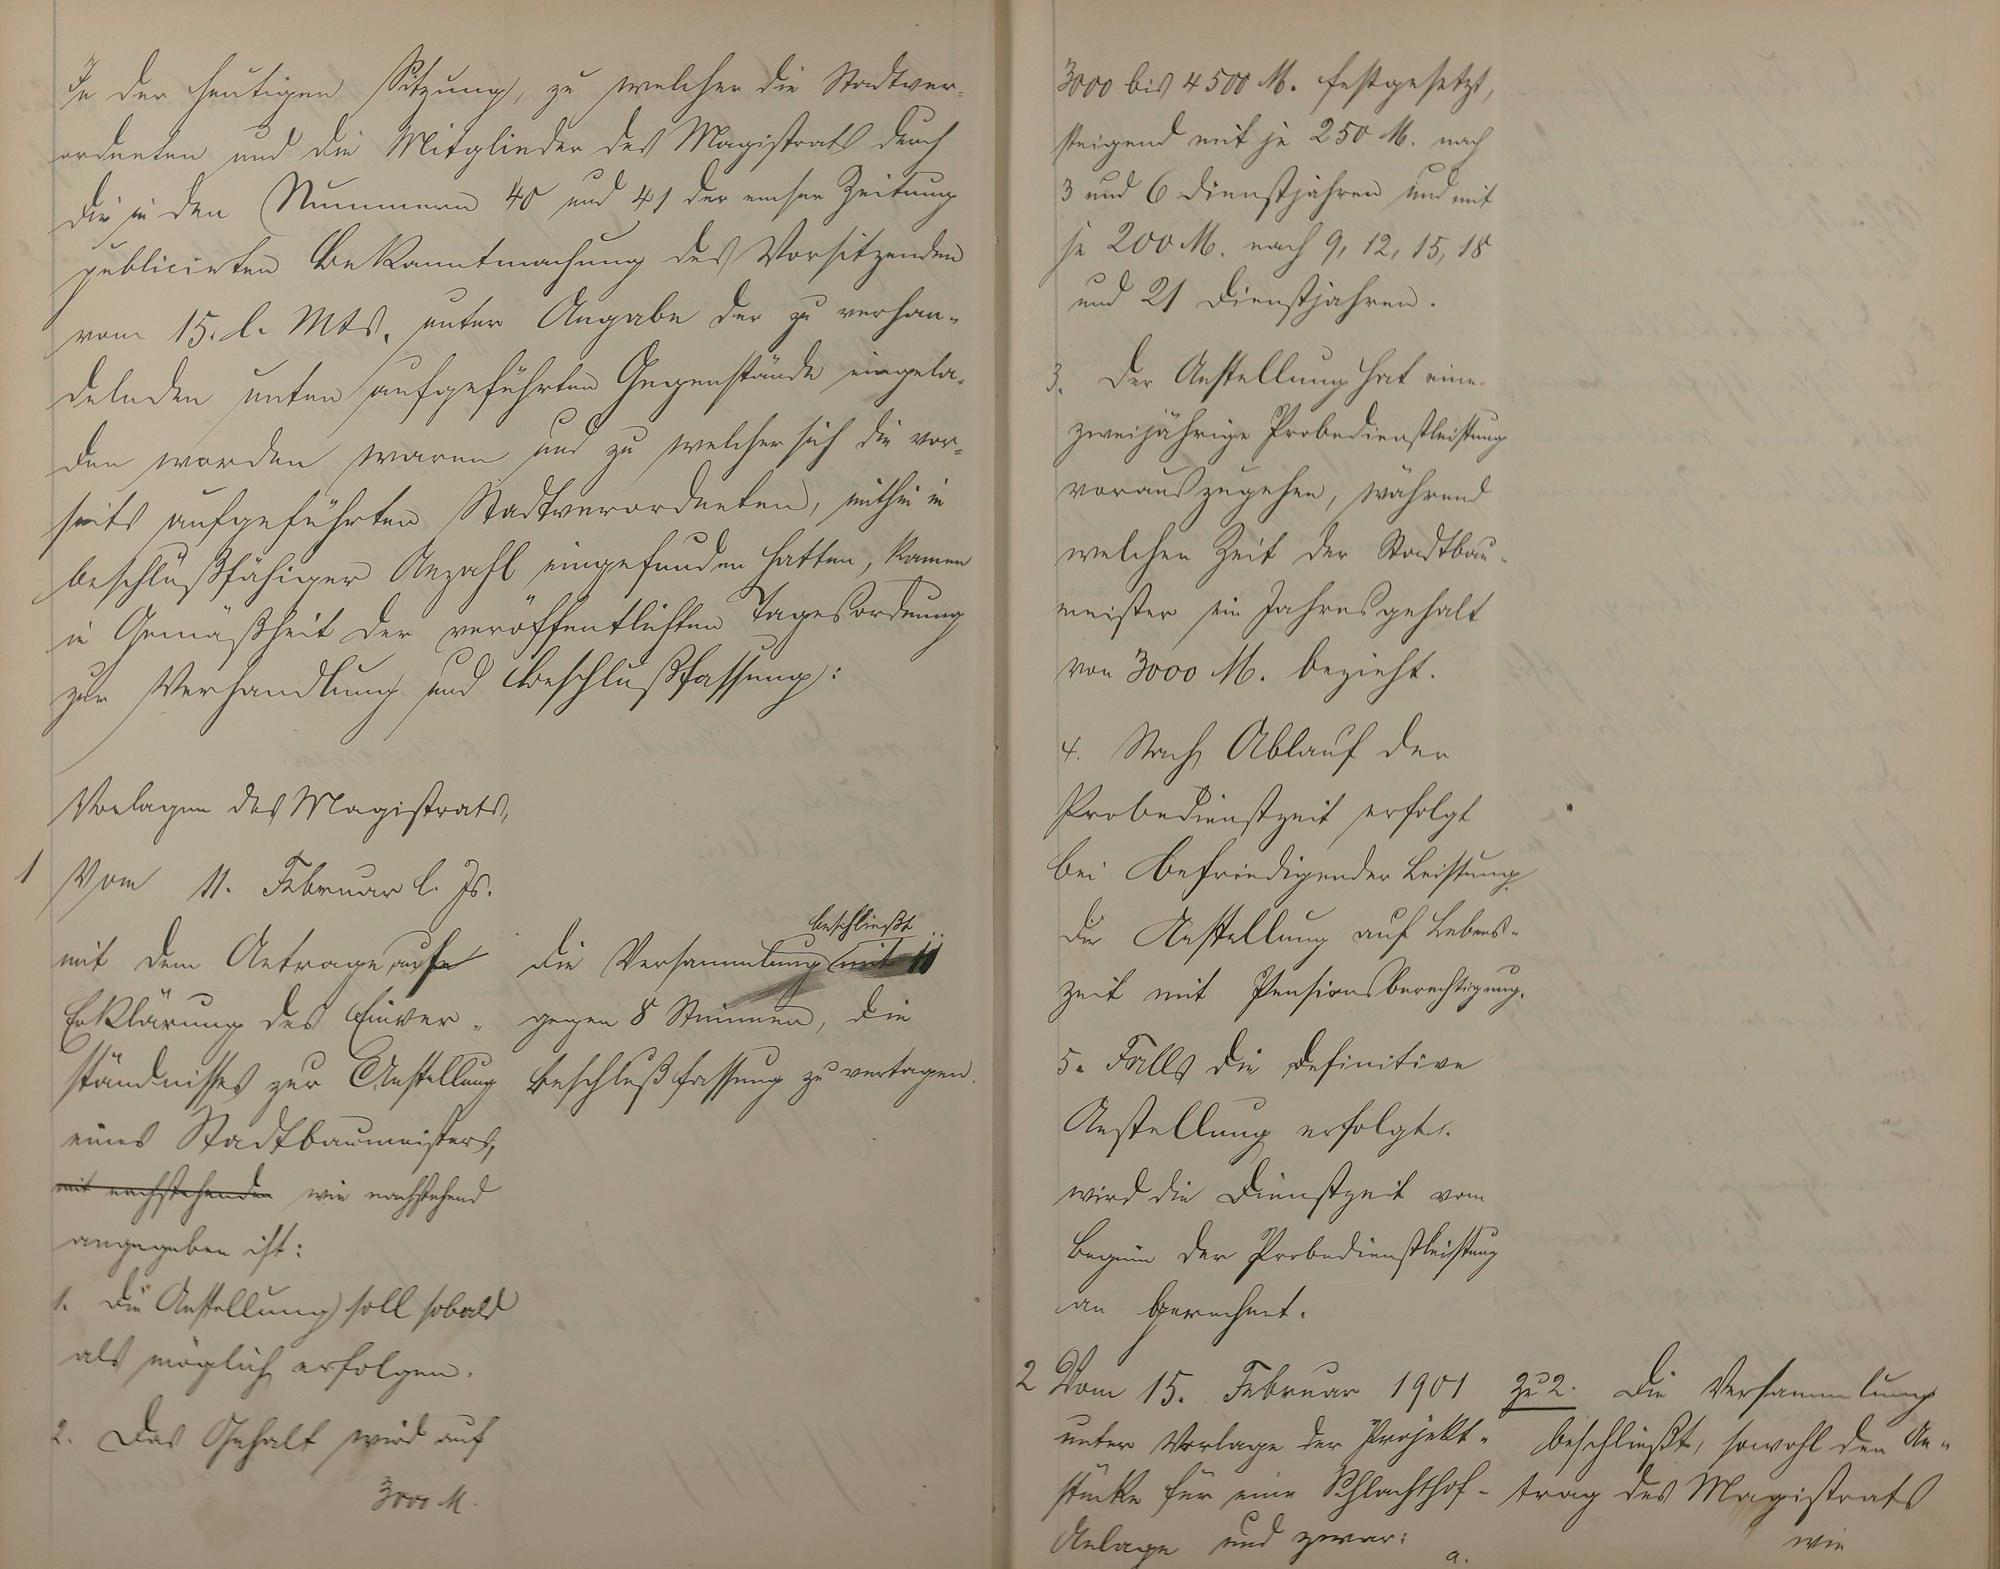 In der heutigen Sitzung, zu welcher die Stadtver-
ordneten und die Mitglieder des Magistrats durch
die in den Nummern 40 und 41 der emser Zeitung
publicirten Bekanntmachung des Vorsitzenden
vom 15. l. Mts. unter Angabe der zu verhan-
delnden unten aufgeführten Gegenstände eingela-
den worden waren und zu welcher sich die vor-
seits aufgeführten Stadtverordneten, mithin in
beschlußfähiger Anzahl eingefunden hatten, kamen
in Gemäßheit der veröffentlichten Tagesordnung
zur Verhandlung und Beschlußfassung:
Vorlagen des Magistrats,
1 Vom 11. Februar l. Js.
mit dem Antrage auf
Erklärung des Einver-
ständnisses zur Anstellung
eines Stadtbaumeisters,
mit nachstehenden wie nachstehend
angegeben ist:
1. Die Anstellung soll sobald
als möglich erfolgen.
2. Das Gehalt wird auf
3000 M.
beschließt
Die Versammlung mit 11
gegen 8 Stimmen, die
Beschlußfassung zu vertagen.
3000 bis 4500 M. festgesetzt,
steigend mit je 250 M. nach
3 und 6 Dienstjahren und mit
je 200 M. nach 9, 12, 15, 18
und 21 Dienstjahren.
3. Der Anstellung hat eine
zweijährige Probedienstleistung
vorauszugehen, während
welcher Zeit der Stadtbau-
meister ein Jahresgehalt
von 3000 M. bezieht.
4. Nach Ablauf der
Probedienstzeit erfolgt
bei befriedigender Leistung
die Anstellung auf Lebens-
zeit mit Pensionsberechtigung.
5. Falls die definitive
Anstellung erfolgt
wird die Dienstzeit vom
Beginn der Probedienstleistung
an gerechnet.
2 Vom 15. Februar 1901
unter Vorlage der Projekt-
stücke für eine Schlachthof-
Anlage und zwar:
a.
Zu 2. Die Versammlung
beschließt, sowohl den An-
trag des Magistrats
wie